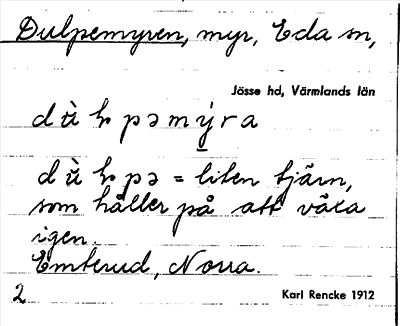 Dulpemyren, myr, Eda sn,
Jösse hd, Värmlands län
dù̀ɫpəmýra
dù̀ɫpə = liten tjärn,
som håller på att växa
igen.
Emterud, Norra.
2
Karl Rencke 1912